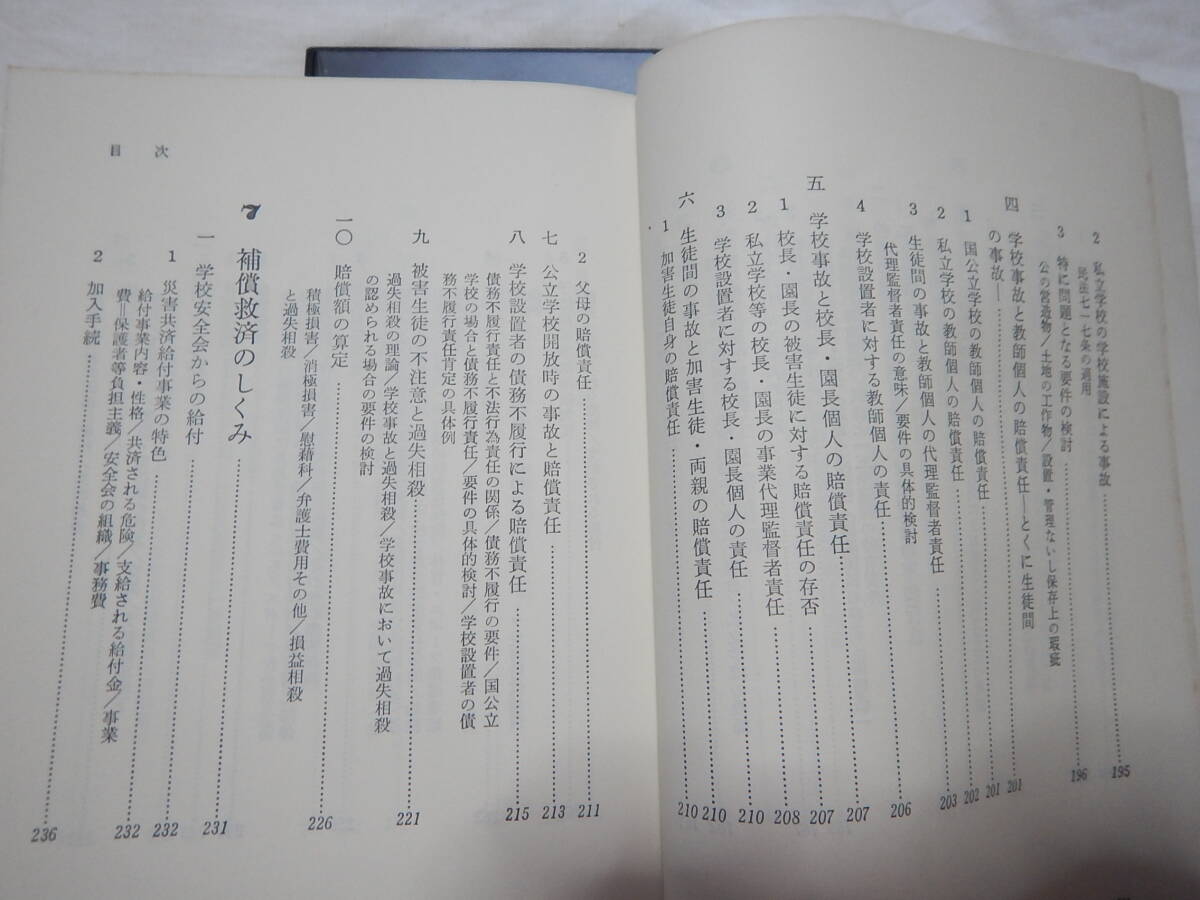 2　私立学校の学校施設による事故……195
民法七一七条の適用
3　特に問題となる要件の検討……196
公の営造物／土地の工作物／設置・管理ないし保存上の瑕疵
四　学校事故と教師個人の賠償責任——とくに生徒間……201
の事故——……201
1　国公立学校の教師個人の賠償責任……202
2　私立学校の教師個人の賠償責任……203
3　生徒間の事故と教師個人の代理監督者責任……206
代理監督者責任の意味／要件の具体的検討
4　学校設置者に対する教師個人の責任……207
五　学校事故と校長・園長個人の賠償責任……207
1　校長・園長の被害生徒に対する賠償責任の存否……208
2　私立学校等の校長・園長の事業代理監督者責任……210
3　学校設置者に対する校長・園長個人の責任……210
六　生徒間の事故と加害生徒・両親の賠償責任……210
1　加害生徒自身の賠償責任……210
目　次
2　父母の賠償責任……211
七　公立学校開放時の事故と賠償責任……213
八　学校設置者の債務不履行による賠償責任……215
債務不履行責任と不法行為責任の関係／債務不履行の要件／国公立
学校の場合と債務不履行責任／要件の具体的検討／学校設置者の債
務不履行責任肯定の具体例
九　被害生徒の不注意と過失相殺……221
過失相殺の理論／学校事故と過失相殺／学校事故において過失相殺
の認められる場合の要件の検討
一〇　賠償額の算定……226
積極損害／消極損害／慰藉料／弁護士費用その他／損益相殺
と過失相殺
7　補償救済のしくみ
一　学校安全会からの給付……231
1　災害共済給付事業の特色……232
給付事業内容・性格／共済される危険／支給される給付金／事業
費＝保護者等負担主義／安全会の組織／事務費……232
2　加入手続……236